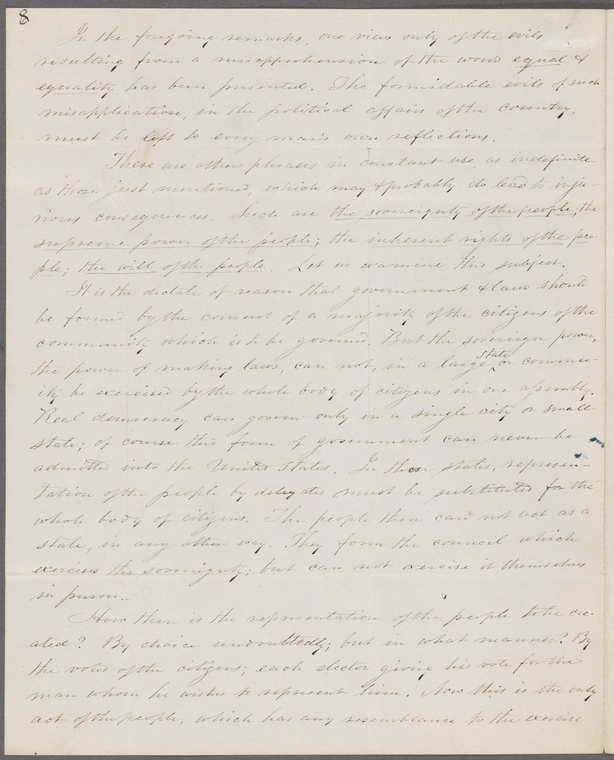 8
In the foregoing remarks, one view only of the evils
resulting from a misapprehension of the words equal &
equality has been presented. The formidable evils of such
misapplication, in the political affairs of the country,
must be left to every man's own reflections.
There are other phrases in constant use, as indefinite
as those just mentioned, which may & probably do lead to inju-
rious consequences. Such are the sovereignty of the people; the
supreme power of the people; the inherent rights of the peo-
ple; the will of the people. Let us examine this subject.
It is the dictate of reason that government & laws should
be formed by the consent of a majority of the citizens of the
community which is to be governed. But the sovereign power,
the power of making laws, can not, in a large
State
or commu-
ity be exercised by the whole body of citizens in one assembly.
Real democracy can govern only in a single city or small
state; of course this form of government can never be
admitted into the United States. In these states, represen-
tation of the people by delegates must be substituted for the
whole body of citizens. The people then can not act as a
state, in any other way. They form the council which
exercises the sovereignty; but can not exercise it themselves
in person.
How then is the representation of the people to be cre-
ated? By choice undoubtedly; but in what manner? By
the votes of the citizens; each elector giving his vote for the
man whom he wishes to represent him. Now this is the only
act of the people, which has any resemblance to the exercise